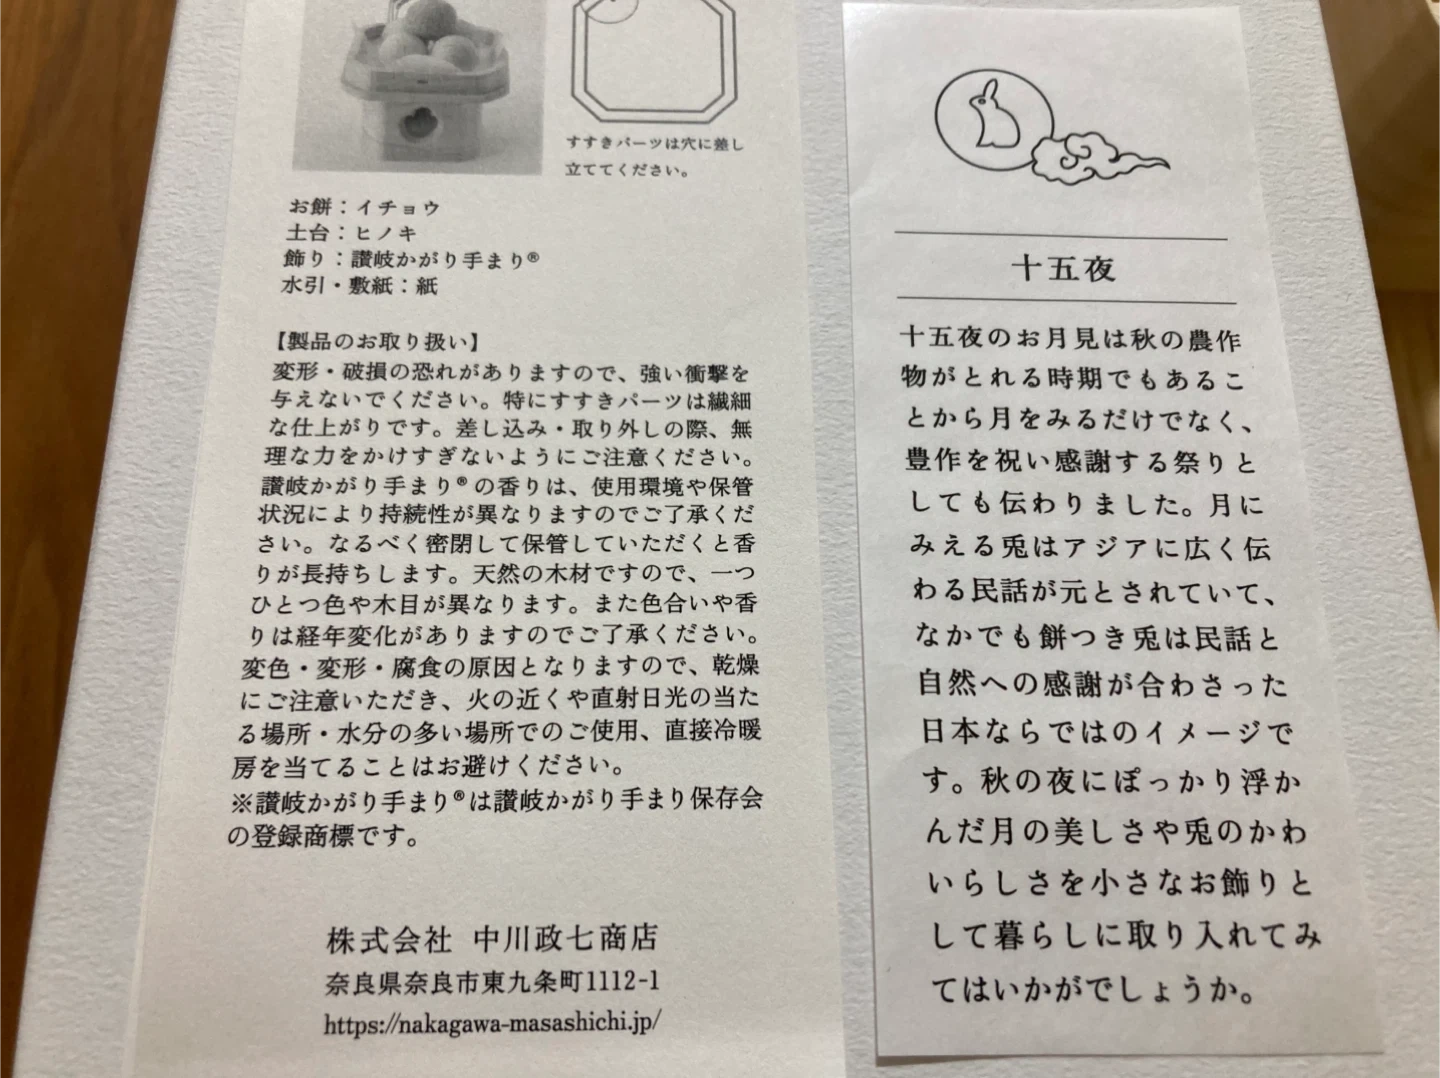 すすきパーツは穴に差し
立ててください。
お餅：イチョウ
土台：ヒノキ
飾り：讃岐かがり手まり®
水引・敷紙：紙
【製品のお取り扱い】
変形・破損の恐れがありますので、強い衝撃を
与えないでください。特にすすきパーツは繊細
な仕上がりです。差し込み・取り外しの際、無
理な力をかけすぎないようにご注意ください。
讃岐かがり手まり®の香りは、使用環境や保管
状況により持続性が異なりますのでご了承くだ
さい。なるべく密閉して保管していただくと香
りが長持ちします。天然の木材ですので、一つ
ひとつ色や木目が異なります。また色合いや香
りは経年変化がありますのでご了承ください。
変色・変形・腐食の原因となりますので、乾燥
にご注意いただき、火の近くや直射日光の当た
る場所・水分の多い場所でのご使用、直接冷暖
房を当てることはお避けください。
※讃岐かがり手まり®は讃岐かがり手まり保存会
の登録商標です。
株式会社 中川政七商店
奈良県奈良市東九条町1112-1
https://nakagawa-masashichi.jp/
十五夜
十五夜のお月見は秋の農作
物がとれる時期でもあるこ
とから月をみるだけでなく、
豊作を祝い感謝する祭りと
しても伝わりました。月に
みえる兎はアジアに広く伝
わる民話が元とされていて、
なかでも餅つき兎は民話と
自然への感謝が合わさった
日本ならではのイメージで
す。秋の夜にぽっかり浮か
んだ月の美しさや兎のかわ
いらしさを小さなお飾りと
して暮らしに取り入れてみ
てはいかがでしょうか。